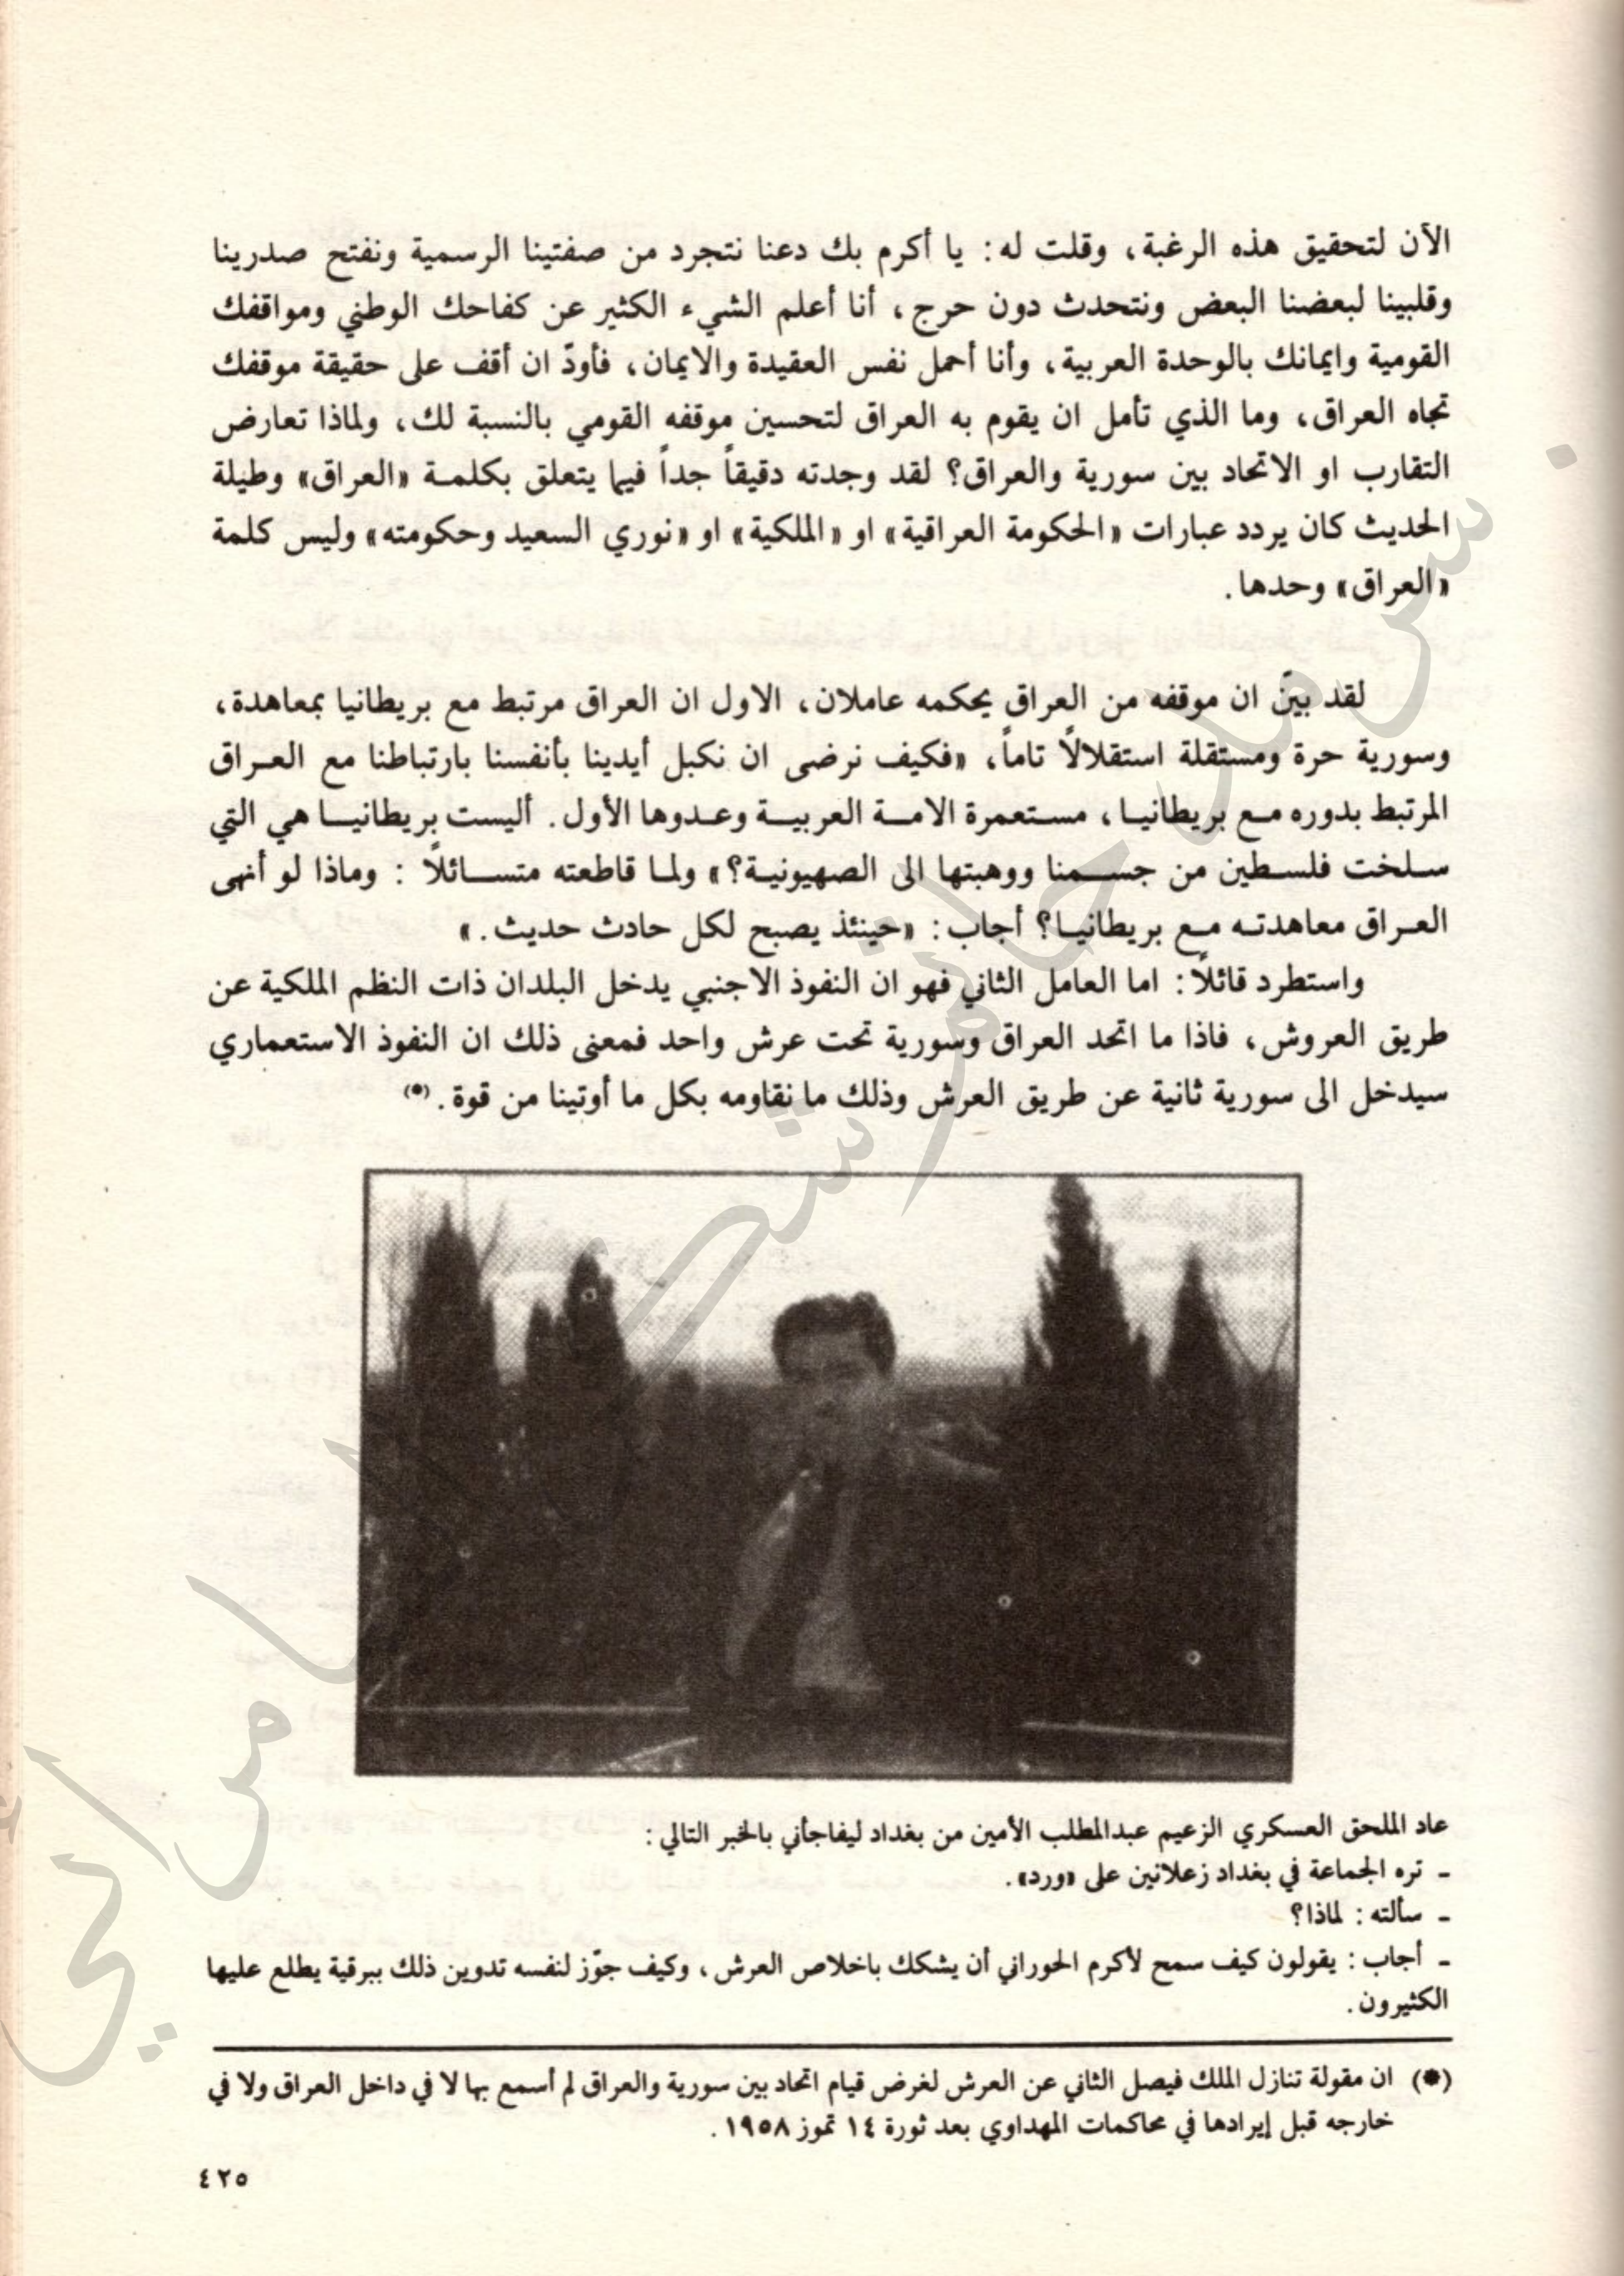 الآن لتحقيق هذه الرغبة، وقلت له: يا أكرم بك دعنا نتجرد من صفتينا الرسمية ونفتح صدرينا
وقلبينا لبعضنا البعض ونتحدث دون حرج، أنا أعلم الشيء الكثير عن كفاحك الوطني ومواقفك
القومية وايمانك بالوحدة العربية، وأنا أحمل نفس العقيدة والايمان، فأودّ ان أقف على حقيقة موقفك
تجاه العراق، وما الذي تأمل ان يقوم به العراق لتحسين موقفه القومي بالنسبة لك، ولماذا تعارض
التقارب او الاتحاد بين سورية والعراق؟ لقد وجدته دقيقاً جداً فيما يتعلق بكلمة «العراق» وطيلة
الحديث كان يردد عبارات «الحكومة العراقية» او «الملكية» او «نوري السعيد وحكومته» وليس كلمة
«العراق» وحدها.
لقد بيّن ان موقفه من العراق يحكمه عاملان، الاول ان العراق مرتبط مع بريطانيا بمعاهدة،
وسورية حرة ومستقلة استقلالاً تاماً، «فكيف نرضى ان نكبل أيدينا بأنفسنا بارتباطنا مع العراق
المرتبط بدوره مع بريطانيا، مستعمرة الامة العربية وعدوها الأول. أليست بريطانيا هي التي
سلخت فلسطين من جسمنا ووهبتها الى الصهيونية؟» ولما قاطعته متسائلاً : وماذا لو أنهى
العراق معاهدته مع بريطانيا؟ أجاب: «حينئذ يصبح لكل حادث حديث.»
واستطرد قائلاً: اما العامل الثاني فهو ان النفوذ الاجنبي يدخل البلدان ذات النظم الملكية عن
طريق العروش، فاذا ما اتحد العراق وسورية تحت عرش واحد فمعنى ذلك ان النفوذ الاستعماري
سيدخل الى سورية ثانية عن طريق العرش وذلك ما نقاومه بكل ما أوتينا من قوة.(*)
عاد الملحق العسكري الزعيم عبدالمطلب الأمين من بغداد ليفاجأني بالخبر التالي:
- تره الجماعة في بغداد زعلانين على «ورد».
- سألته: لماذا؟
- أجاب: يقولون كيف سمح لأكرم الحوراني أن يشكك باخلاص العرش، وكيف جوّز لنفسه تدوين ذلك ببرقية يطلع عليها
الكثيرون.
(*) ان مقولة تنازل الملك فيصل الثاني عن العرش لغرض قيام اتحاد بين سورية والعراق لم أسمع بها لا في داخل العراق ولا في
خارجه قبل إيرادها في محاكمات المهداوي بعد ثورة ١٤ تموز ١٩٥٨.
٤٢٥